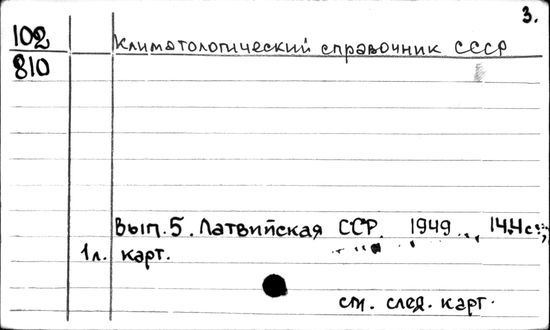 3.
102 Климатологический справочник СССР
810
Вып. 5. Латвийская ССР. 1949., 144 с.;
1 л. карт.
см. след. карт.